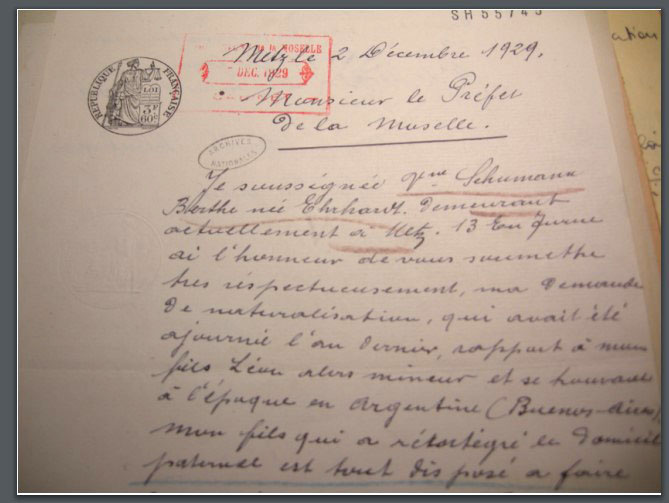 SH 55743
Metz le 2 Décembre 1929.
MOSELLE
DEC. 1929
RÉPUBLIQUE FRANÇAISE
LOI
3F
60c
Monsieur le Préfet
de la Moselle.
ARCHIVES
NATIONALES
Je soussignée Vve Schumann
Berthe née Ehrhardt. demeurant
actuellement à Metz, 13 En Jurue
ai l'honneur de vous soumettre
très réspectueusement, ma demande
de naturalisation, qui avait été
ajourné l'an dernier, rapport à mon
fils Léon alors mineur et se trouvant
à l'époque en Argentine (Buenos-aires)
mon fils qui a rétortégré le domicil
paternel est tout disposé a faire